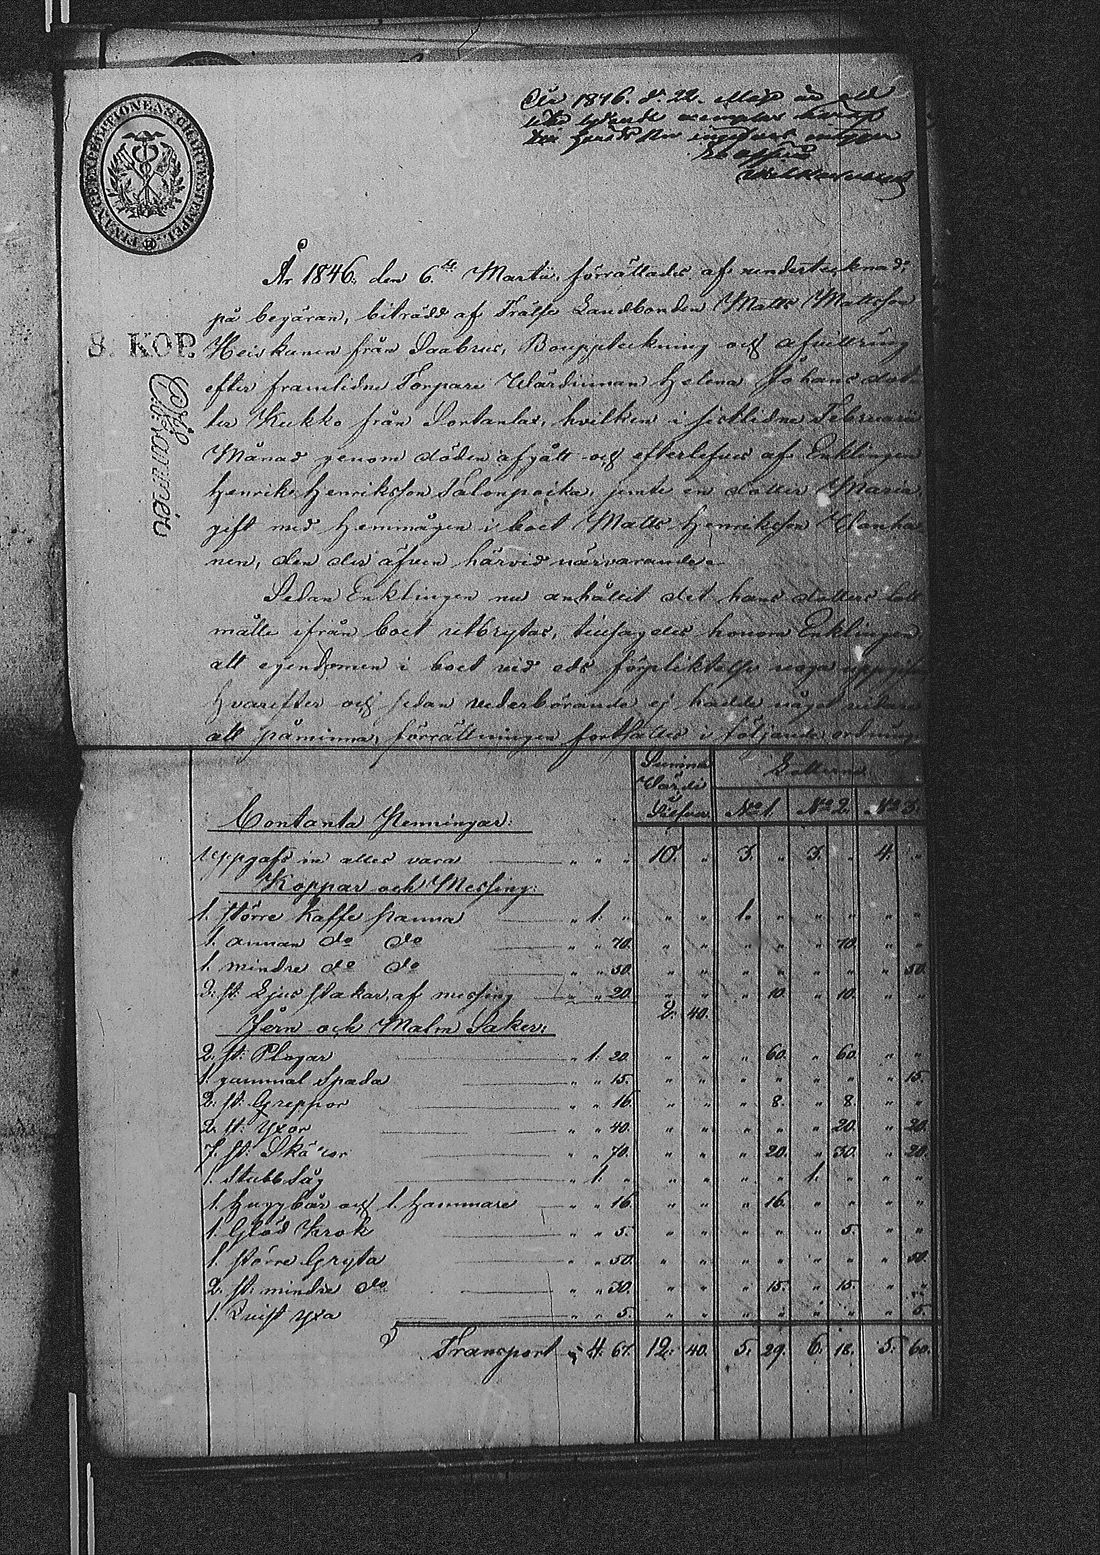 FINANCE EXPEDITIONENS CHARTÆ STEMPEL
År 1846. d. 22. Maji är ett
lika lydande exemplar häraf
8. KOP.
År 1846, den 6te Martii, förrättades af undertecknad,
på begäran, biträdd af Frälse Landbonden Matts Mattsson
Heiskanen från Saabrus, Bouppteckning och afvittring
efter framlidne Torpare Wärdinnan Helena Johans dot-
ter Kukko från Sontanlax, hvilken i sistlidne Februarii
Månad genom döden afgått och efterlefves af Enklingen
Henrik Henriksson Salonpoika, jemte en dotter Maria,
gift med Hemmågen i boet Matts Henriksson Wanha-
nen, den der äfven härvid närvarande.
Sedan Enklingen nu anhållit det hans dotters lott
måtte ifrån boet utbrytas, tillsades honom Enklingen
att egendomen i boet vid eds förpliktelse noga uppgifva
hvarefter och sedan vederbörande ej hadde något vidare
att påminna, förrättningen fortsattes i följande ordning:
Summa Lotterne
Värde
i
Silfver No 1. No 2. No 3.
Contanta Penningar:
Uppgafs in alles vara " " " 10. " 3. " 3. " 4. "
Koppar och Messing:
1. större Kaffe panna " 1. " " " 1. " " " " "
1. annan do do " " 70. " " " " " 70. " "
1. mindre do do " " 50. " " " " " " " 50.
2. st. Ljus stakar af messing " " 20. " " " 10. " 10. " "
2. 40.
Jern och Malm Saker:
2. st. Plogar " 1. 20. " " " 60. " 60. " "
1. gammal Spada " " 15. " " " " " " " 15.
2. st. Greppor " " 16. " " " 8. " 8. " "
2. st. Yxor " " 40. " " " " " 20. " 20.
7. st. Skäror " " 70. " " " 20. " 30. " 20.
1. Stubb Såg " 1. " " " " " 1. " " "
1. Huggbår och 1. Hammare " " 16. " " " 16. " " " "
1. Glöd Krok " " 5. " " " " " 5. " "
1. större Gryta " " 50. " " " " " " " 50.
2. st. mindre do " " 30. " " " 15. " 15. " "
1. Quist yxa " " 5. " " " " " " " 5.
Transport 4. 67. 12. 40. 5. 29. 6. 18. 5. 60.